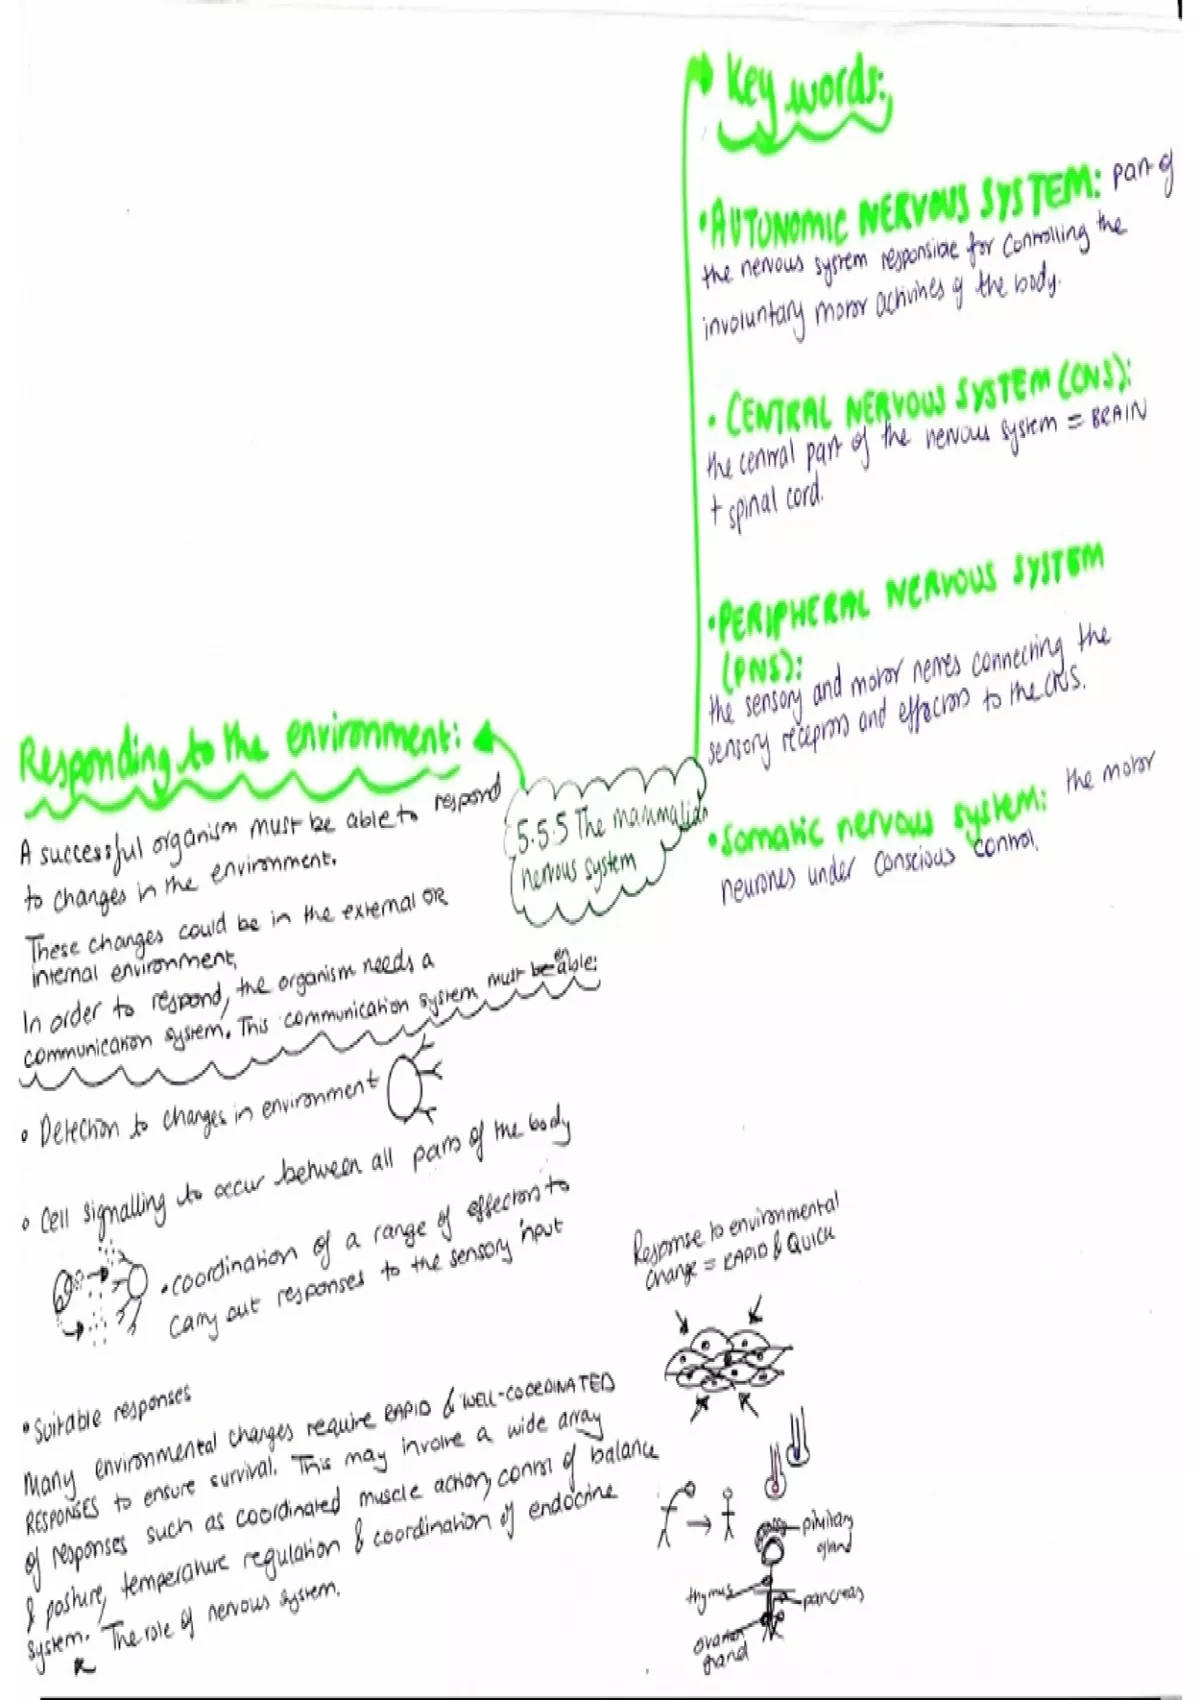 Key words:
• AUTONOMIC NERVOUS SYSTEM: part of
the nervous system responsible for controlling the
involuntary motor activities of the body.
• CENTRAL NERVOUS SYSTEM (CNS):
the central part of the nervous system = BRAIN
+ spinal cord.
• PERIPHERAL NERVOUS SYSTEM
(PNS):
the sensory and motor nerves connecting the
sensory receptors and effectors to the CNS.
• Somatic nervous system: the motor
neurones under conscious control.
5.5.5 The mammalian
nervous system
Responding to the environment:
A successful organism must be able to respond
to changes in the environment.
These changes could be in the external OR
internal environment.
In order to respond, the organism needs a
communication system. This communication system must be able:
en
• Detection to changes in environment
• Cell signalling to occur between all parts of the body
• coordination of a range of effectors to
carry out responses to the sensory input
• Suitable responses
Many environmental changes require RAPID & WELL-COORDINATED
RESPONSES to ensure survival. This may involve a wide array
of responses such as coordinated muscle action, control of balance
& posture, temperature regulation & coordination of endocrine
system. The role of nervous system.
Response to environmental
change = RAPID & QUICK
pituitary
gland
thymus
pancreas
ovarian
gland